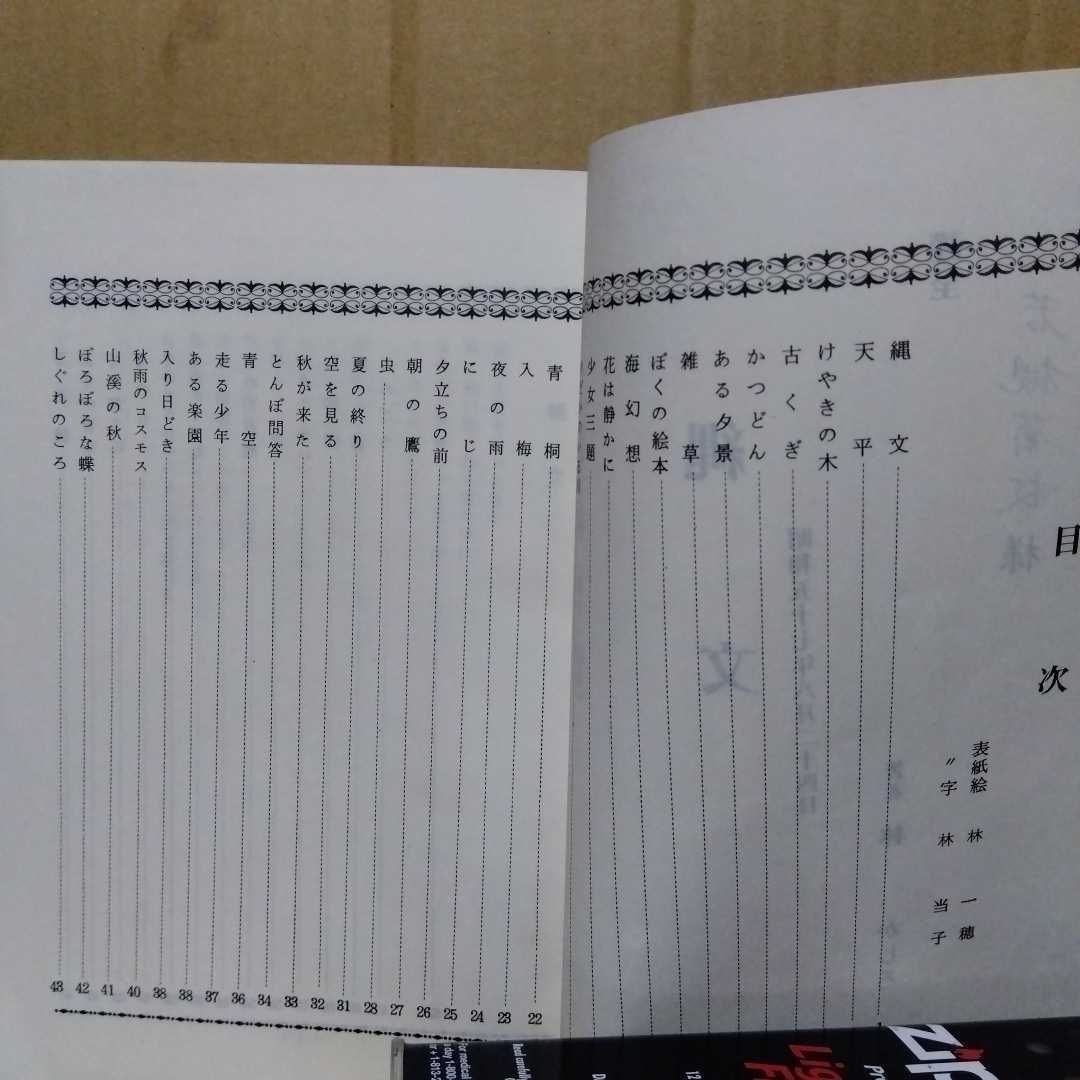 目次
表紙絵 林 一穂
〃字 林 当子
縄文
天平
けやきの木
古くぎ
かつどん
ある夕景
雑草
ぼくの絵本
海幻想
花は静かに
少女三題
青桐 22
入梅 23
夜の雨 24
にじ 25
夕立ちの前 26
朝の鷹 27
虫 28
夏の終り 31
空を見る 32
秋が来た 33
とんぼ問答 34
青空 36
走る少年 37
ある楽園 38
入り日どき 38
秋雨のコスモス 40
山溪の秋 41
ぼろぼろな蝶 42
しぐれのころ 43